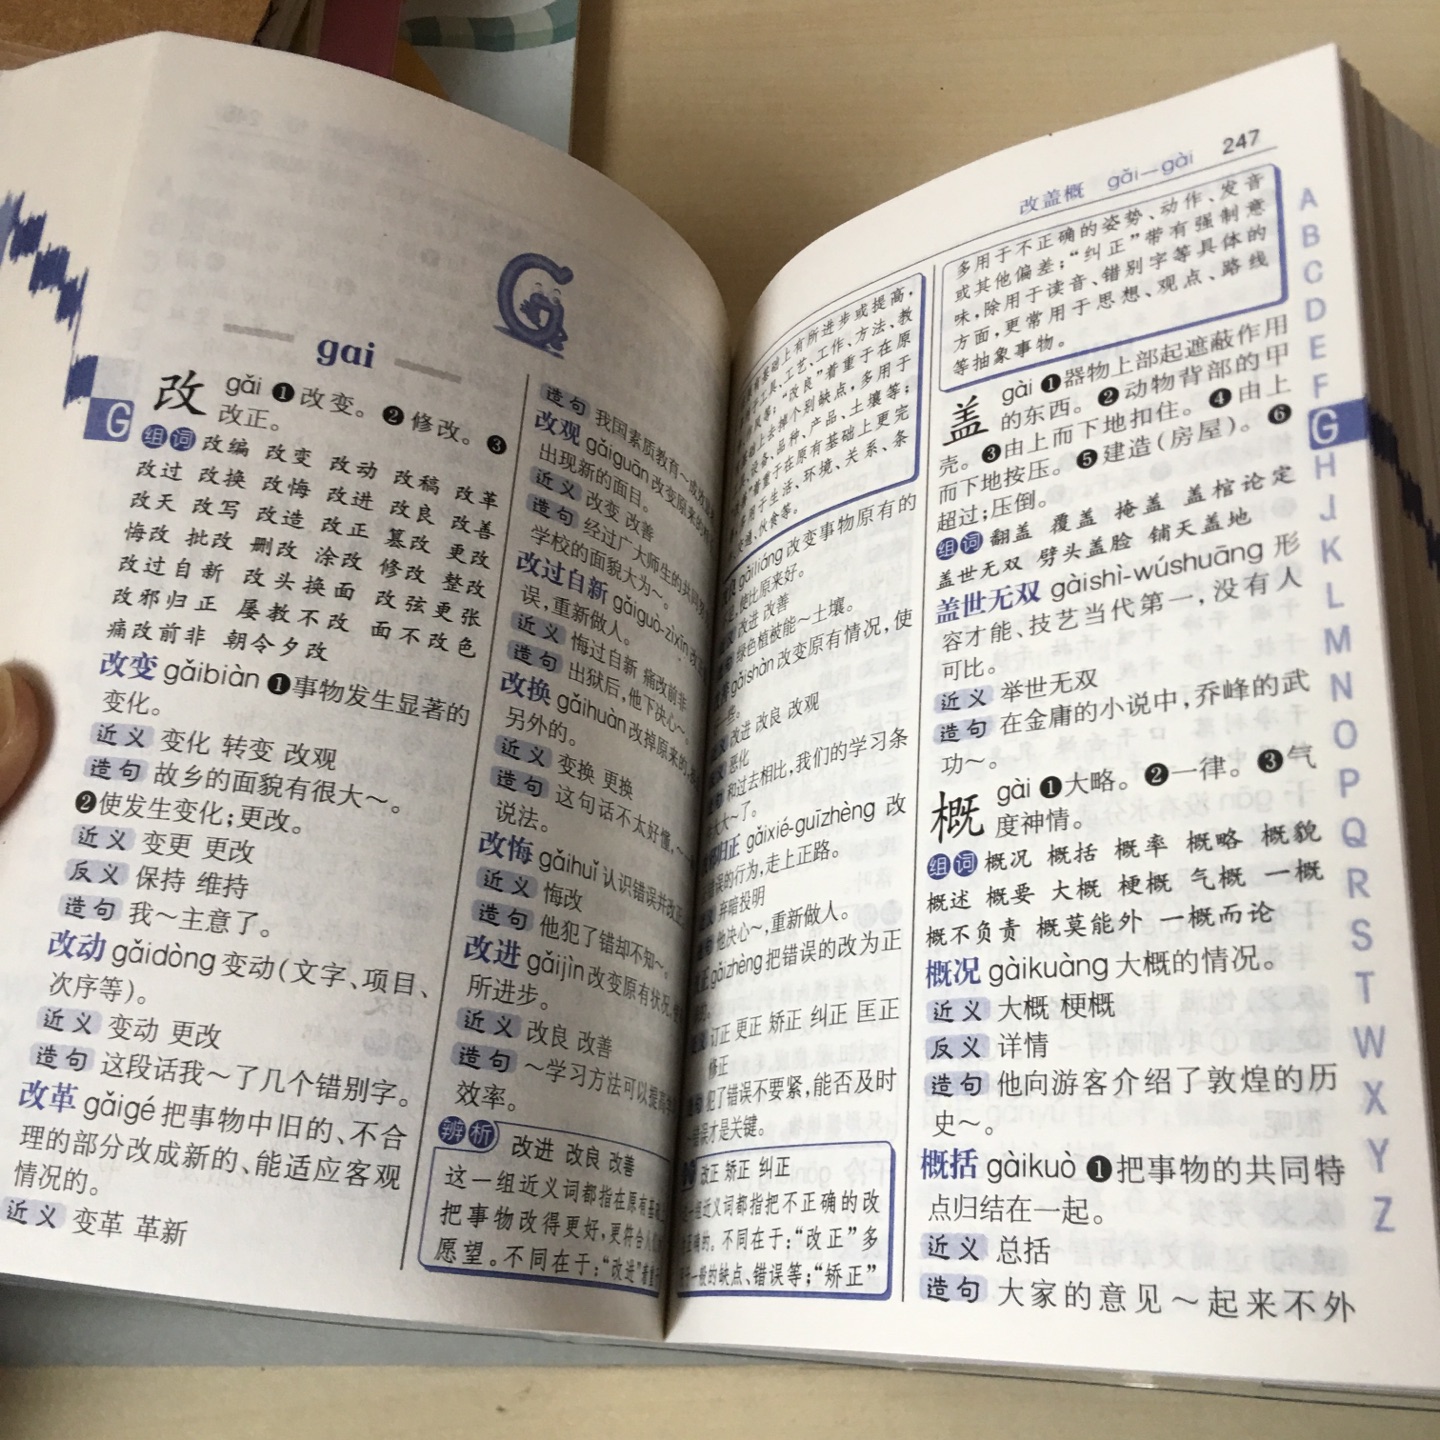 G
gai
G
改 gǎi ❶改变。❷修改。❸
改正。
组词 改编 改变 改动 改稿 改革
改过 改换 改悔 改进 改良 改善
改天 改写 改造 改正 篡改 更改
悔改 批改 删改 涂改 修改 整改
改过自新 改头换面 改弦更张
改邪归正 屡教不改 面不改色
痛改前非 朝令夕改
改变 gǎibiàn ❶事物发生显著的
变化。
近义 变化 转变 改观
造句 故乡的面貌有很大～。
❷使发生变化;更改。
近义 变更 更改
反义 保持 维持
造句 我～主意了。
改动 gǎidòng 变动(文字、项目、
次序等)。
近义 变动 更改
造句 这段话我～了几个错别字。
改革 gǎigé 把事物中旧的、不合
理的部分改成新的、能适应客观
情况的。
近义 变革 革新
造句 我国素质教育～成效
改观 gǎiguān 改变原来的
出现新的面目。
近义 改变 改善
造句 经过广大师生的共同
学校的面貌大为～。
改过自新 gǎiguò-zìxīn 改
误,重新做人。
近义 悔过自新 痛改前非
造句 出狱后,他下决心～。
改换 gǎihuàn 改掉原来的,
另外的。
近义 变换 更换
造句 这句话不太好懂,～
说法。
改悔 gǎihuǐ 认识错误并改正
近义 悔改
造句 他犯了错却不知～。
改进 gǎijìn 改变原有状况,
所进步。
近义 改良 改善
造句 ～学习方法可以提高
效率。
辨析 改进 改良 改善
这一组近义词都指在原有基础
把事物改得更好,更符合
愿望。不同在于:“改进”着重
改盖概 gǎi—gài 247
基础上有所进步或提高,
工具、工艺、工作、方法、教
等;“改良”着重于在原
上去掉个别缺点,多用于
设备、品种、产品、土壤等;
着重于在原有基础上更完
用于生活、环境、关系、条
伙食等。
gǎiliáng 改变事物原有的
使比原来好。
改进 改善
绿色植被能～土壤。
gǎishàn 改变原有情况,使
一些。
改进 改良 改观
恶化
和过去相比,我们的学习条
大大～了。
归正 gǎixié-guīzhèng 改
误的行为,走上正路。
弃暗投明
他决心～,重新做人。
gǎizhèng 把错误的改为正
订正 更正 矫正 纠正 匡正
修正
犯了错误不要紧,能否及时
～错误才是关键。
改正 矫正 纠正
一组近义词都指把不正确的改
正确的。不同在于:“改正”多
于一般的缺点、错误等;“矫正”
多用于不正确的姿势、动作、发音
或其他偏差;“纠正”带有强制意
味,除用于读音、错别字等具体的
方面,更常用于思想、观点、路线
等抽象事物。
盖 gài ❶器物上部起遮蔽作用
的东西。❷动物背部的甲
壳。❸由上而下地扣住。❹由上
而下地按压。❺建造(房屋)。❻
超过;压倒。
组词 翻盖 覆盖 掩盖 盖棺论定
盖世无双 劈头盖脸 铺天盖地
盖世无双 gàishì-wúshuāng 形
容才能、技艺当代第一,没有人
可比。
近义 举世无双
造句 在金庸的小说中,乔峰的武
功～。
概 gài ❶大略。❷一律。❸气
度神情。
组词 概况 概括 概率 概略 概貌
概述 概要 大概 梗概 气概 一概
概不负责 概莫能外 一概而论
概况 gàikuàng 大概的情况。
近义 大概 梗概
反义 详情
造句 他向游客介绍了敦煌的历
史～。
概括 gàikuò ❶把事物的共同特
点归结在一起。
近义 总括
造句 大家的意见～起来不外
A
B
C
D
E
F
G
H
J
K
L
M
N
O
P
Q
R
S
T
W
X
Y
Z